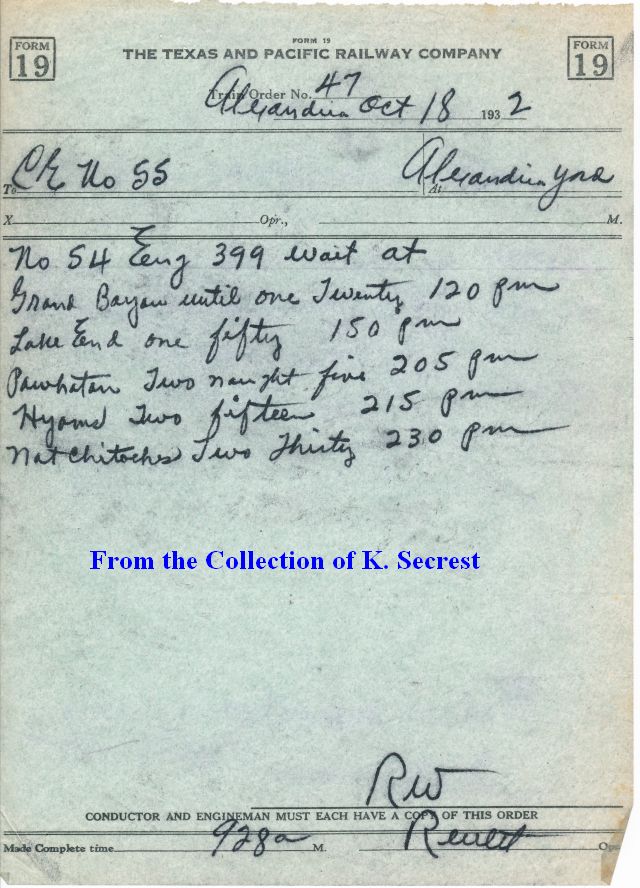 FORM 19
FORM 19
THE TEXAS AND PACIFIC RAILWAY COMPANY
FORM 19
Train Order No. 47
Alexandria Oct 18 1932
To C&E No 55 At Alexandria Yard
X Opr., M.
No 54 Eng 399 wait at
Grand Bayou until one Twenty 120 pm
Lake End one fifty 150 pm
Powhatan Two naught five 205 pm
Hyams Two fifteen 215 pm
Natchitoches Two Thirty 230 pm
From the Collection of K. Secrest
RW
CONDUCTOR AND ENGINEMAN MUST EACH HAVE A COPY OF THIS ORDER
Made Complete time 928a M. Opr